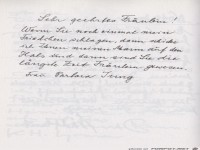 Sehr geehrtes Fräulein!
Wenn Sie noch einmal mein
schlagen, dann schicke
ich Ihnen meinen Mann auf den
Hals und dann sind Sie die
längste Zeit Fräulein gewesen.
Frau Barbara